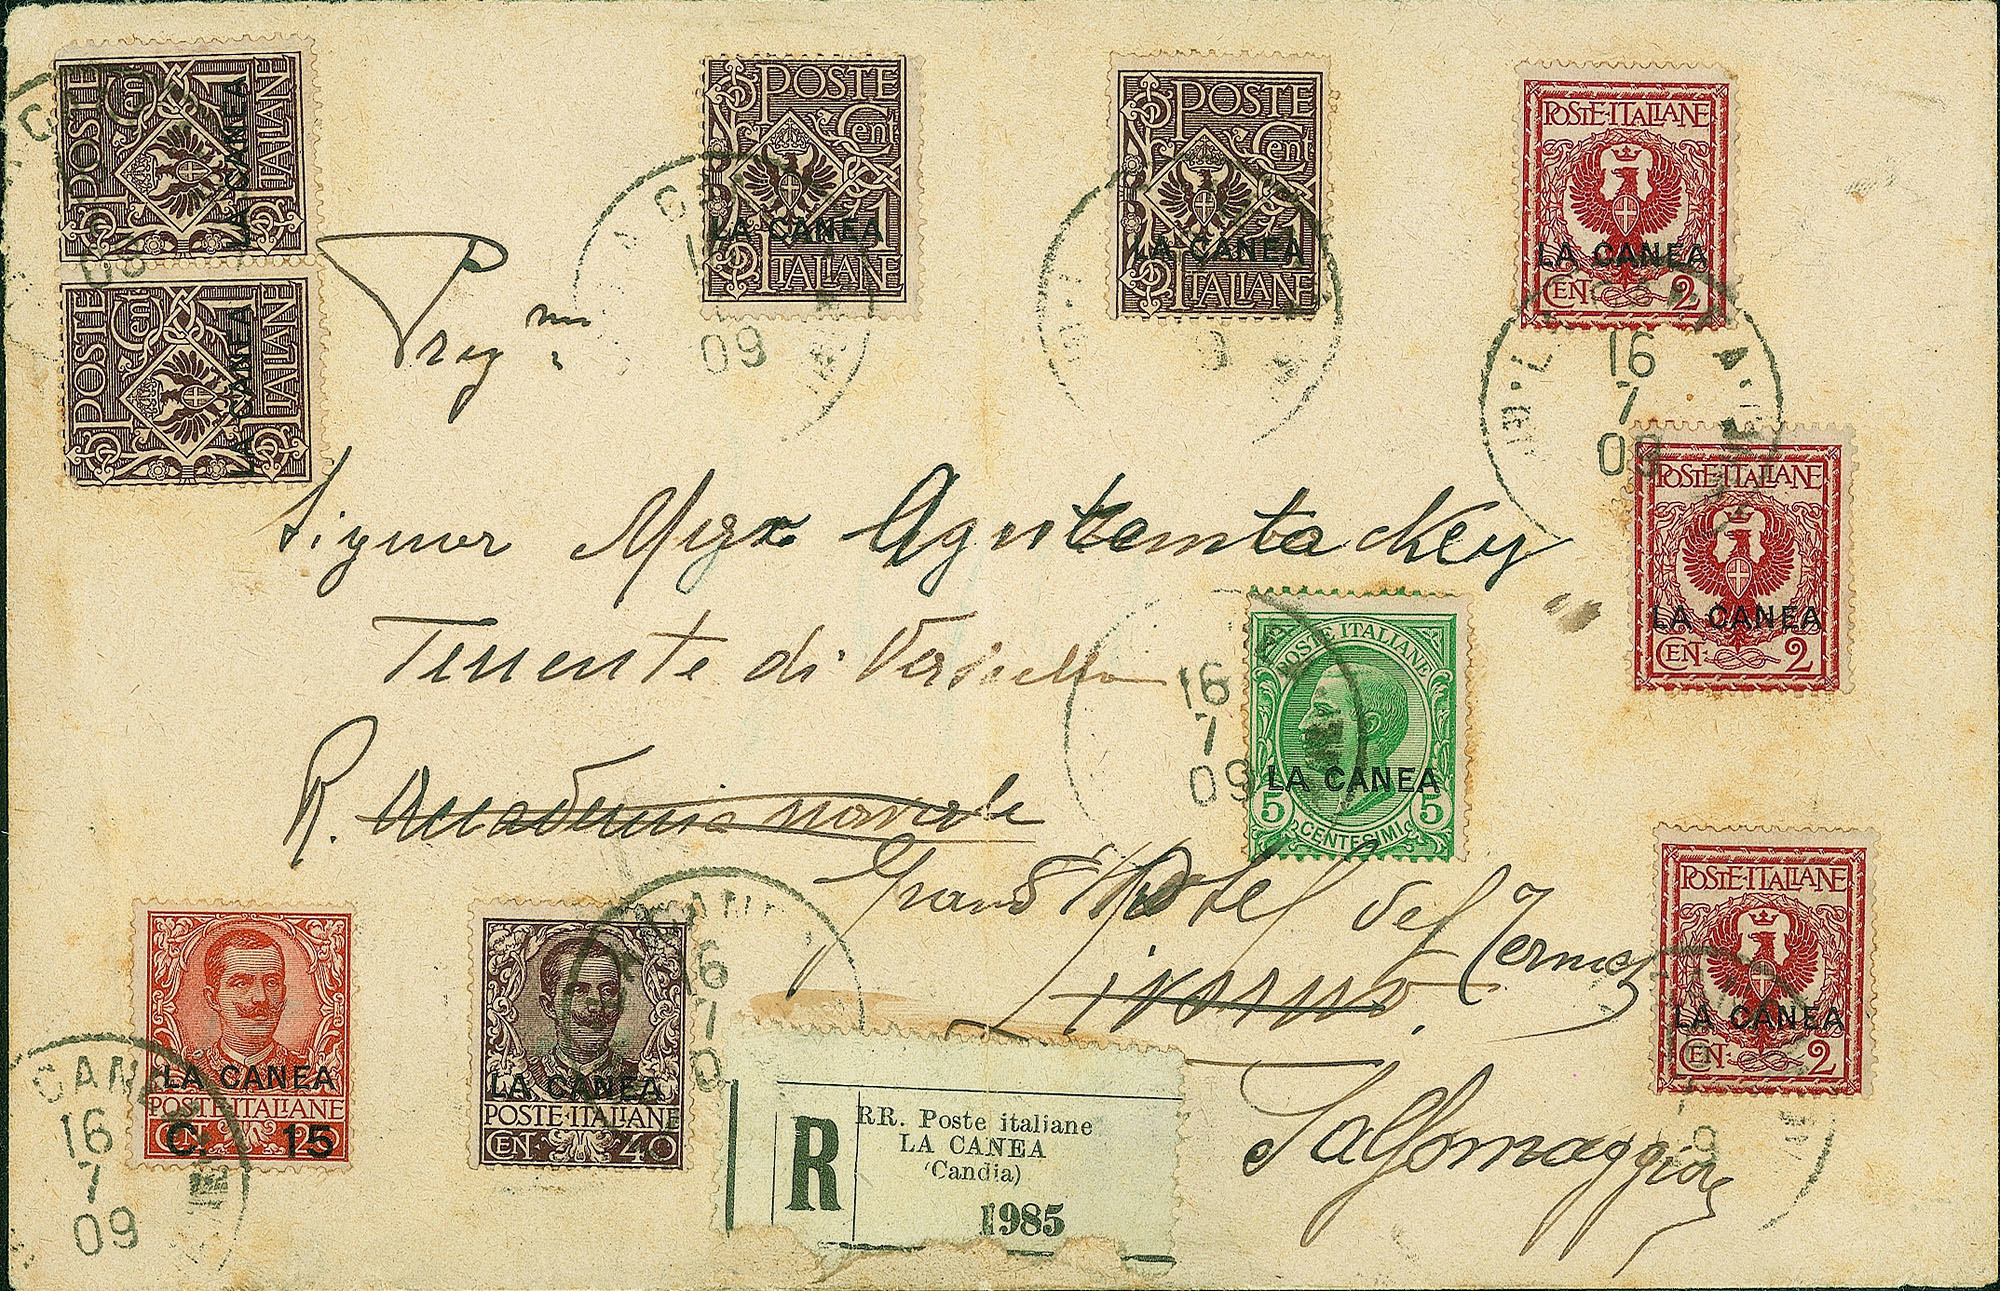 POSTE ITALIANE 1 Cent LA CANEA
POSTE ITALIANE 1 Cent LA CANEA
POSTE
Cent
1
LA CANEA
ITALIANE
POSTE
Cent
1
LA CANEA
ITALIANE
POSTE·ITALIANE
LA CANEA
CEN· 2
16
7
09
POSTE·ITALIANE
LA CANEA
CEN· 2
Preg.mo
Signor
Tenente di Vascello
R. Accademia navale
Grand Hotel del Terme
Livorno.
Salsomaggiore
16
7
09
POSTE ITALIANE
LA CANEA
5 5
CENTESIMI
POSTE·ITALIANE
LA CANEA
CEN· 2
LA CANEA
POSTE·ITALIANE
C. 15
CANEA
16
7
09
LA CANEA
POSTE·ITALIANE
CEN· 40
16
7
R
RR. Poste italiane
LA CANEA
(Candia)
1985